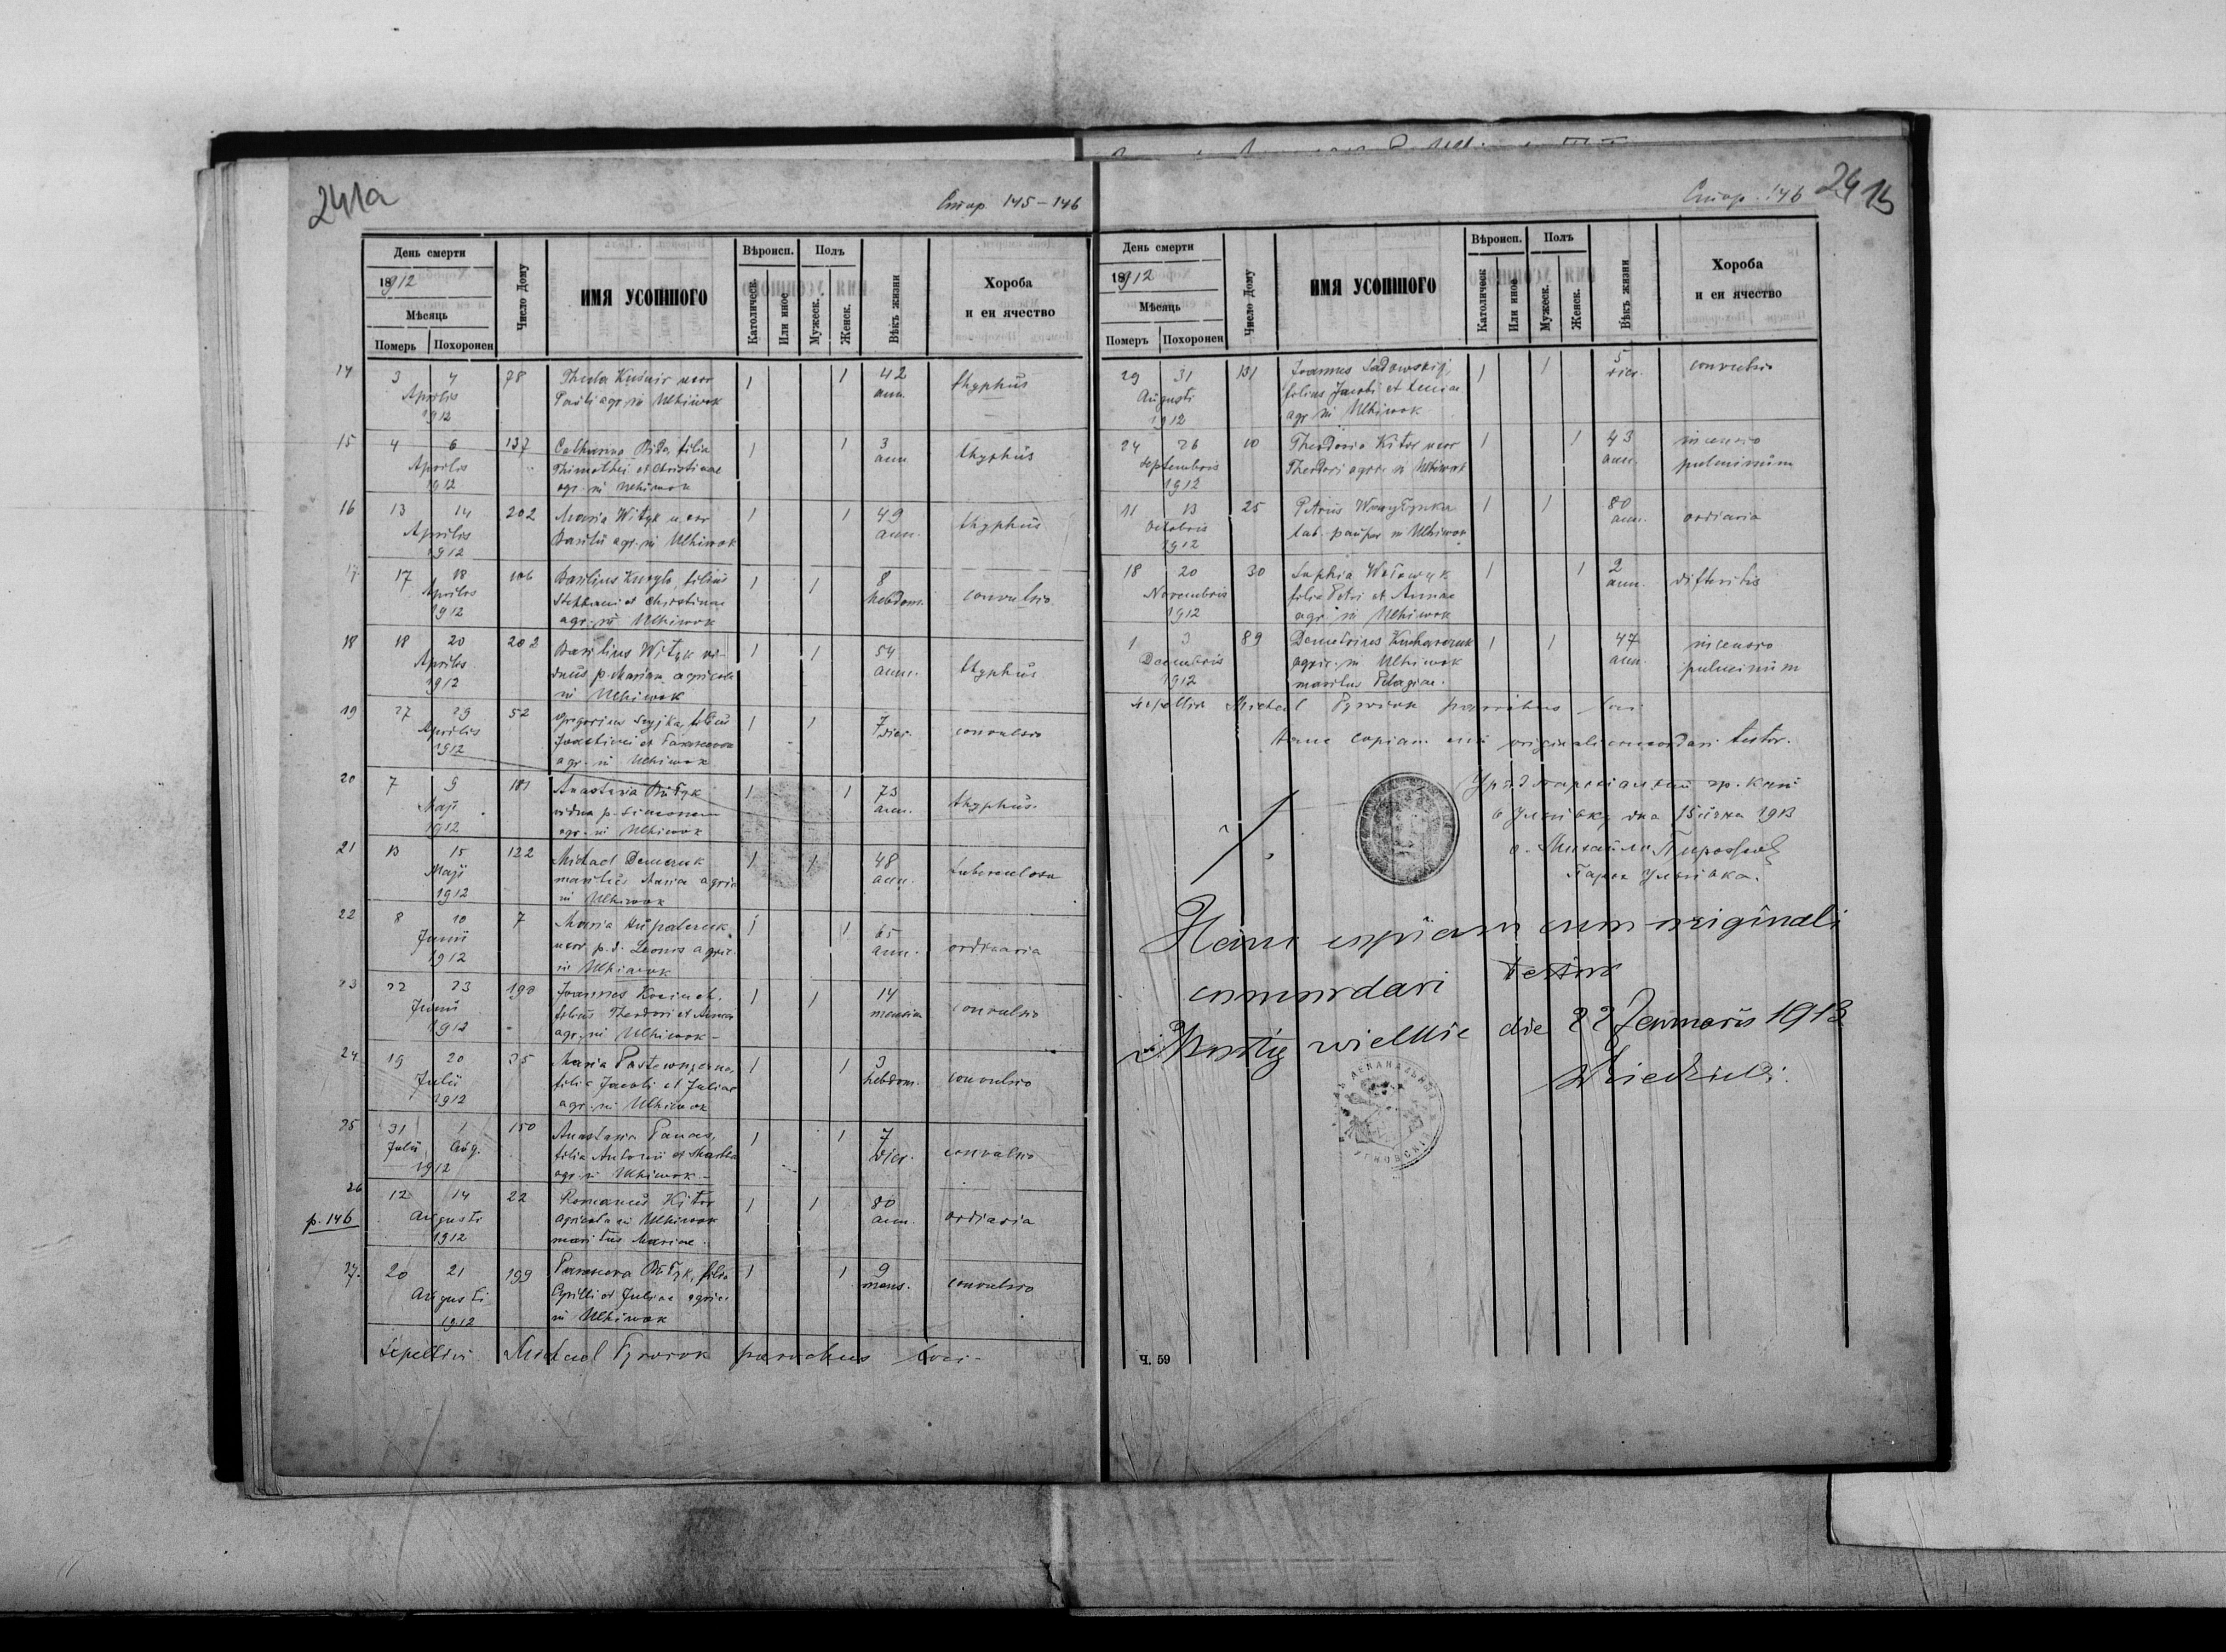 241a
Стор 145-146
День смерти
1912
Мѣсяць
Померъ Похоронен
Число Дому
ИМЯ УСОПШОГО
Вѣроисп.
Католическ.
Или иное
Полъ
Мужеск.
Женск.
Вѣкъ жизни
Хороба
и еи ячество
14 3 4 78 Thecla Kuśnir uxor 1 1 42 thyphus
Aprilis Pauli agr. in Ulhiwok ann.
1912
15 4 6 137 Catharina Bida, filia 1 1 3 thyphus
Aprilis Thimothei et Christinae ann.
1912 agr. in Ulhiwok
16 13 14 202 Maria Wityk uxor 1 1 49 thyphus
Aprilis Basilii agr. in Ulhiwok ann.
1912
17 17 18 106 Basilius filius 1 1 8 convulsio
Aprilis Stephani et Christinae hebdom.
1912 agr. in Ulhiwok
18 18 20 202 Basilius Wityk vi- 1 1 54 thyphus
Aprilis duus p. Mariam agricola ann.
1912 in Ulhiwok
19 27 29 52 Gregorius filius 1 1 7 convulsio
Aprilis et Parascevae dier.
1912 agr. in Ulhiwok
20 7 9 181 Anastasia 1 1 73 thyphus
Maji vidua p. Simonem ann.
1912 agr. in Ulhiwok
21 13 15 122 Michael Demczuk 1 1 48 tuberculosa
Maji maritus Maria agric ann.
1912 in Ulhiwok
22 8 10 7 Maria 1 1 65 ordinaria
Junii uxor p. d. Leonis agric. ann.
1912 in Ulhiwok
23 22 23 190 Joannes 1 1 14 convulsio
Junii filius Theodori et Annae mensium
1912 agr. in Ulhiwok
24 19 20 35 Maria 1 1 3 convulsio
Julii filia Jacobi et Juliae hebdom.
1912 agr. in Ulhiwok
25 31 1 150 Anastasia Panas, 1 1 7 convulsio
Julii Aug. filia Antonii et Martha dier.
1912 agr. in Ulhiwok
26 12 14 22 Romanus Kitor 1 1 80 ordiaria
p. 146 Augusti agricola in Ulhiwok ann.
1912 maritus Mariae.
27. 20 21 199 Parasceva filia 1 1 9 convulsio
Augusti Cyrilli et Juliae agric. mens.
1912 in Ulhiwok
Sepelivi Michael parochus loci
Стор. 146
241b
День смерти
1912
Мѣсяць
Померъ Похоронен
Число Дому
ИМЯ УСОПШОГО
Вѣроисп.
Католическ
Или иное
Полъ
Мужеск.
Женск.
Вѣкъ жизни
Хороба
и еи ячество
29 31 131 Joannes Sadowskij, 1 1 5 convulsio
Augusti filius Jacobi et dier.
1912 agr. in Ulhiwok
24 26 10 Theodosia Kitor uxor 1 1 43 incensio
Septembris Theodori agric. in Ulhiwok ann. pulminum
1912
11 13 25 Petrus 1 1 80 ordiaria
Octobris lab. pauper in Ulhiwok ann.
1912
18 20 30 Sophia 1 1 2 difteritis
Novembris filia Petri et Annae ann.
1912 agr. in Ulhiwok
1 3 89 Demetrius Kucharczuk 1 1 47 incensio
Decembris agric. in Ulhiwok ann. pulminum
1912 maritus Pelagiae.
Sepelivi Michael parochus loci
Hanc copiam cum originali concordari testor.
Уряд парохіальний гр. кат
в дна 15 січня 1913
о. Михайло
Парох
Hanc copiam cum originali
concordari testor
Mosty wielkie die 22 Januarii 1913
Ч. 59